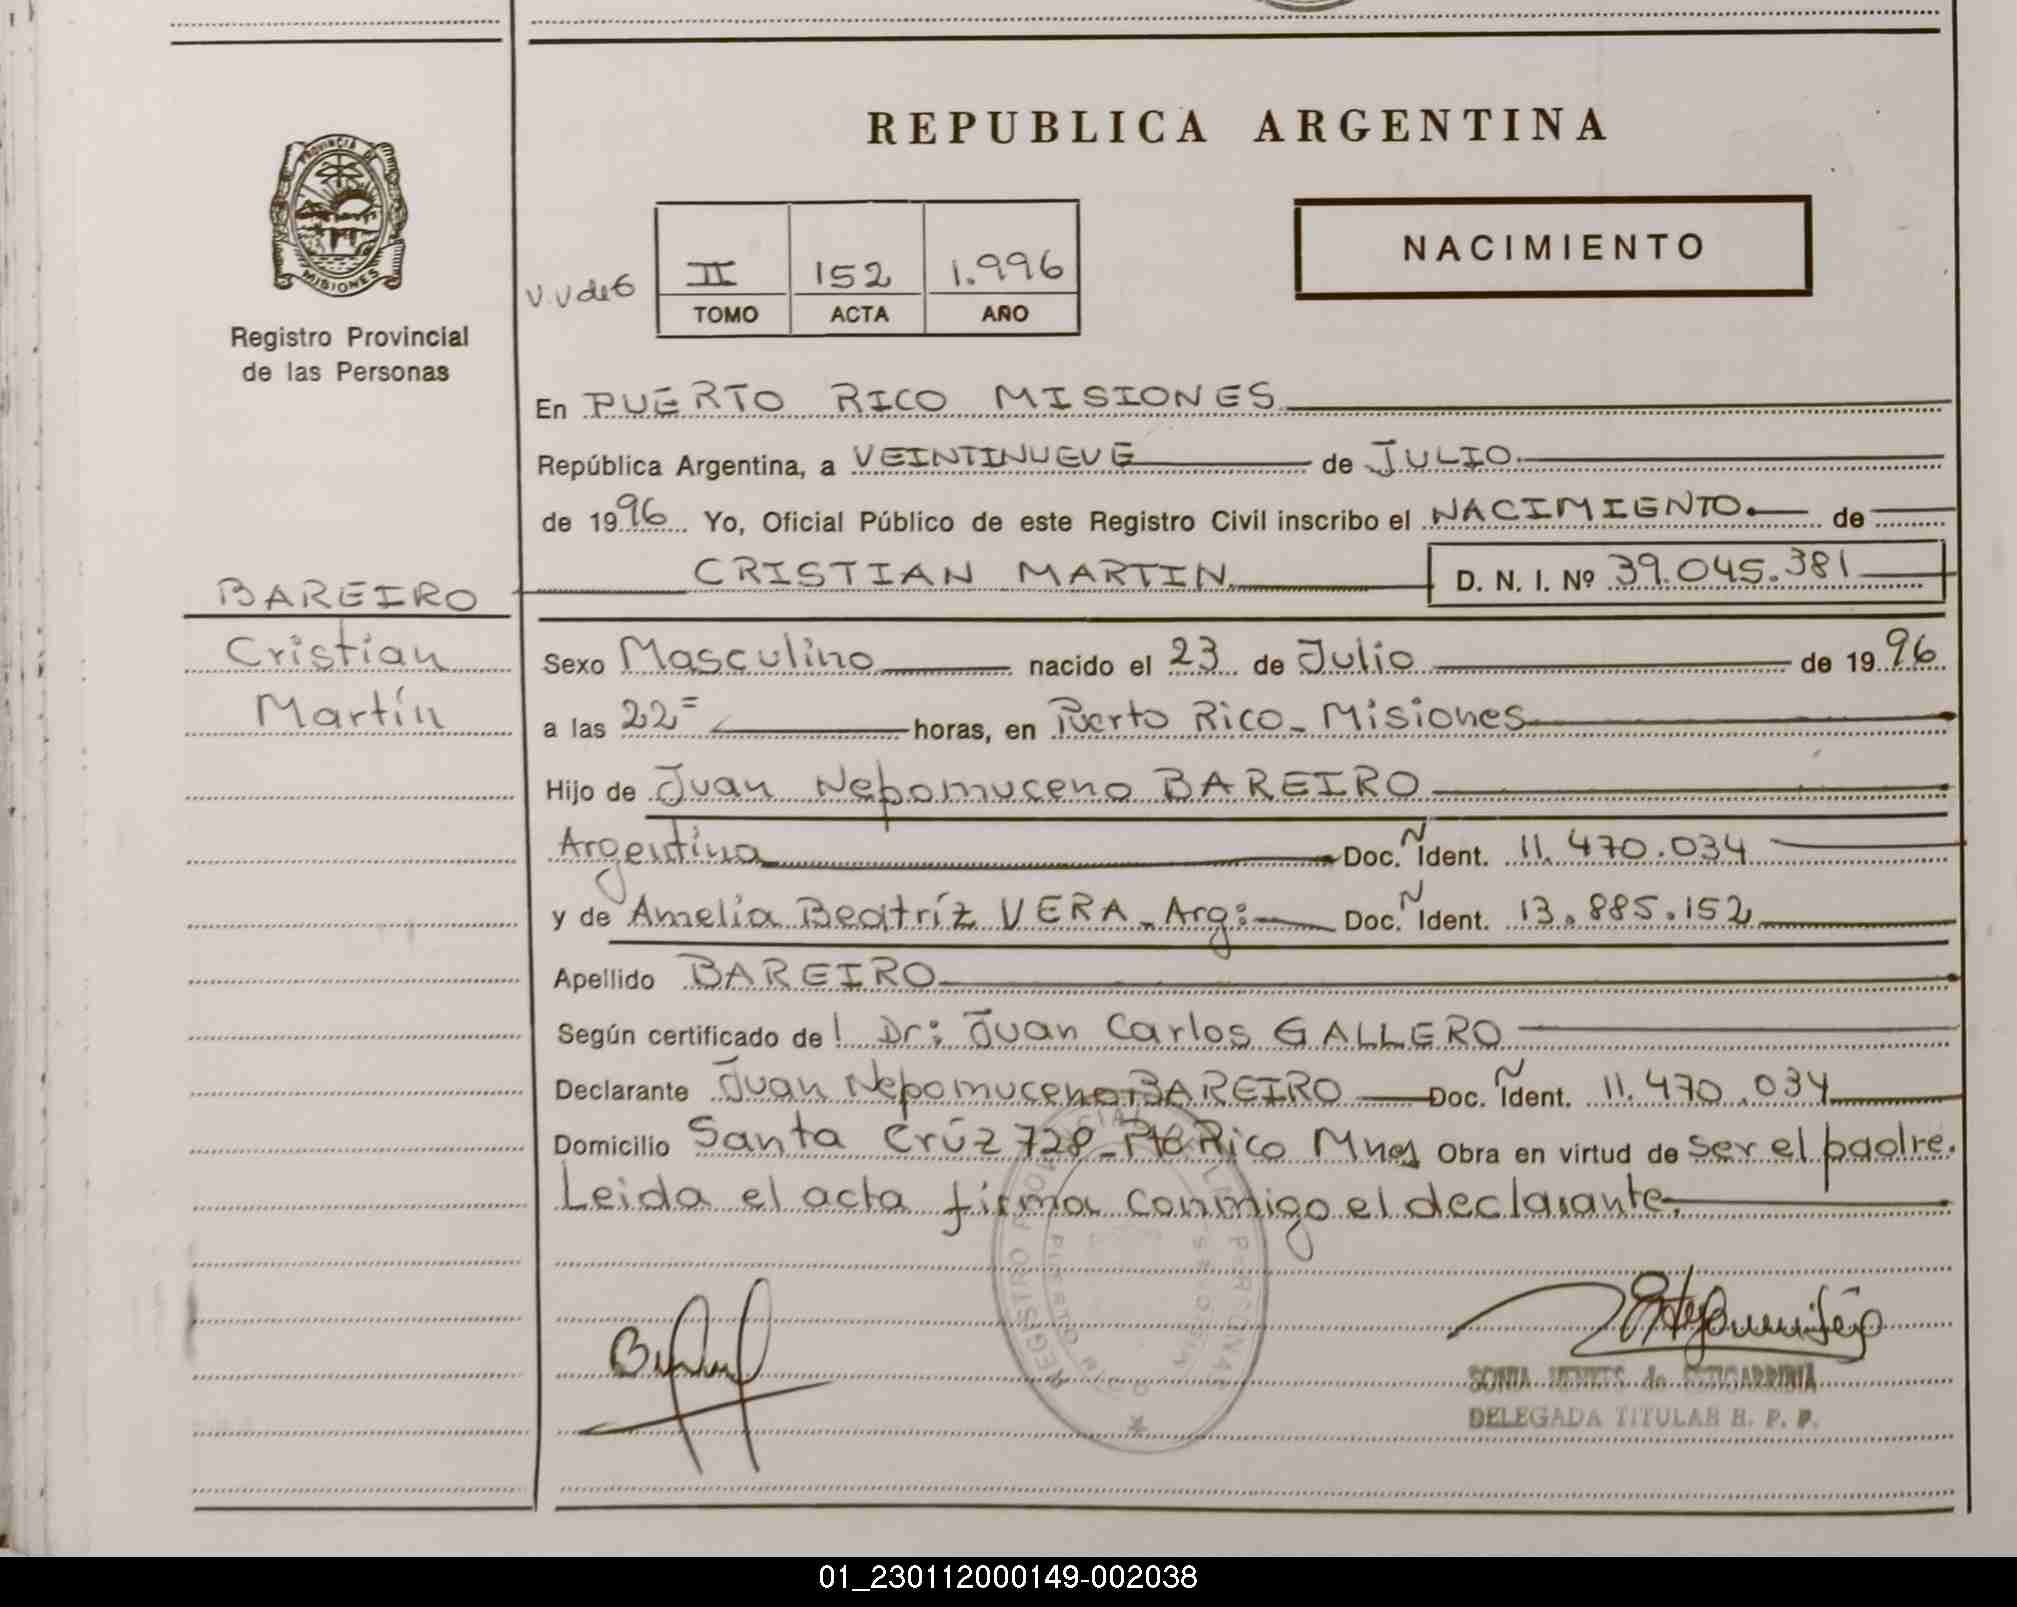 REPUBLICA ARGENTINA
PROVINCIA DE
MISIONES
Registro Provincial
de las Personas
NACIMIENTO
II 152 1.996
TOMO ACTA AÑO
En PUERTO RICO MISIONES
República Argentina, a VEINTINUEVE de JULIO
de 1996 Yo, Oficial Público de este Registro Civil inscribo el NACIMIENTO. de
CRISTIAN MARTIN D. N. I. Nº 39.045.381
BAREIRO
Cristian
Martín
Sexo Masculino nacido el 23 de Julio de 1996
a las 22= horas, en Puerto Rico - Misiones
Hijo de Juan Nepomuceno BAREIRO
Argentina Doc. Ident. 11.470.034
y de Amelia Beatríz VERA - Arg: Doc. Ident. 13.885.152
Apellido BAREIRO
Según certificado de l Dr: Juan Carlos GALLERO
Declarante Juan Nepomuceno BAREIRO Doc. Ident. 11.470.034
Domicilio Santa Crúz 728 - Pto Rico Mnes Obra en virtud de ser el padre.
Leida el acta firma conmigo el declarante.
REGISTRO PROVINCIAL DE LAS PERSONAS
PUERTO RICO MISIONES
SONIA de ESTIGARRIBIA
DELEGADA TITULAR R. P. P.
01_230112000149-002038